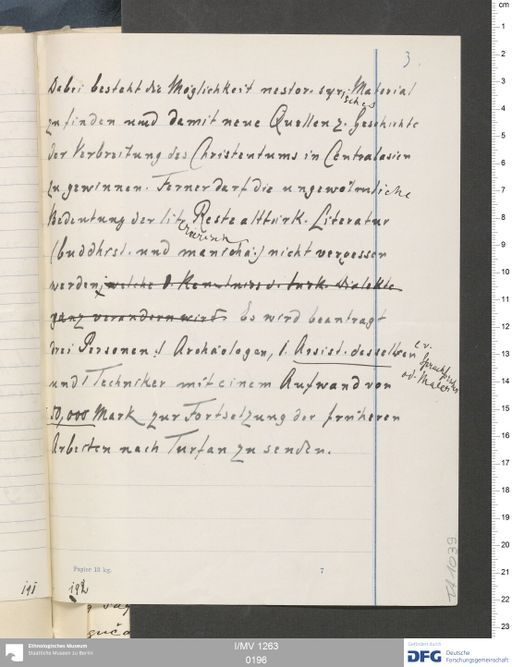 3.
Dabei besteht die Möglichkeit nestor. syrisches Material
zu finden und damit neue Quellen z. Geschichte
der Verbreitung des Christentums in Centralasien
zu gewinnen. Ferner darf die ungewöhnliche
Bedeutung der literarischen Reste alttürk. Literatur
(buddhist. und manichä:) nicht vergessen
werden, welche d. Kenntniss d. turk. Dialekte
ganz verändern wird. Es wird beantragt
drei Personen: 1 Archäologen, 1. Assist. desselben
ev. Sprachforscher
od. Maler
und 1 Techniker mit einem Aufwand von
50,000 Mark zur Fortsetzung der früheren
Arbeiten nach Turfan zu senden.
Papier 13 kg.
7
191
192
TA 1039
cm
1
2
3
4
5
6
7
8
9
10
11
12
13
14
15
16
17
18
19
20
21
22
23
Ethnologisches Museum
Staatliche Museen zu Berlin
I/MV 1263
0196
Gefördert durch
DFG Deutsche
Forschungsgemeinschaft